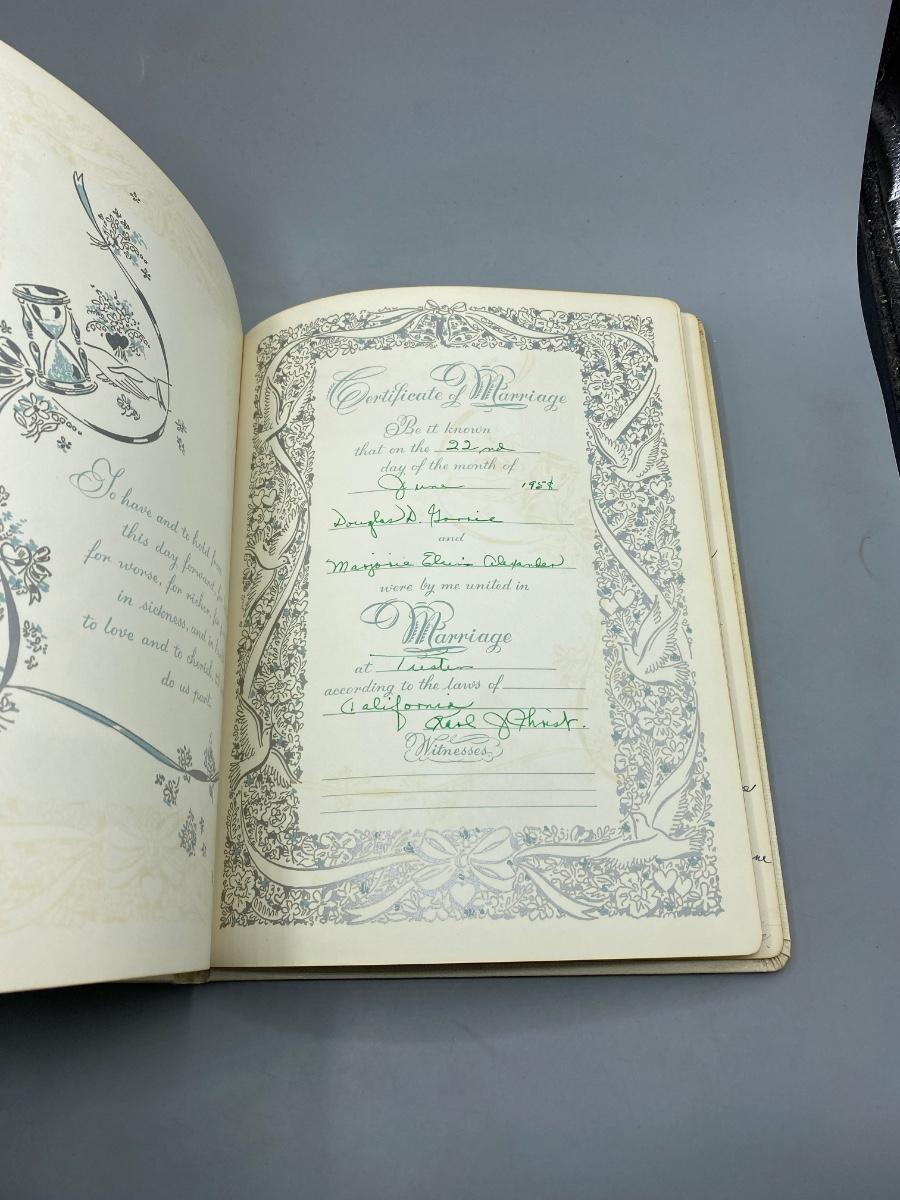 To have and to hold from
this day forward, for
for worse, for richer, for
in sickness, and in
to love and to cherish,
do us part
Certificate of Marriage
Be it known
that on the 22nd
day of the month of
June 1958
Douglas D.
and
Marjorie Alexander
were by me united in
Marriage
at Tustin
according to the laws of
California
Karl J Christ.
Witnesses